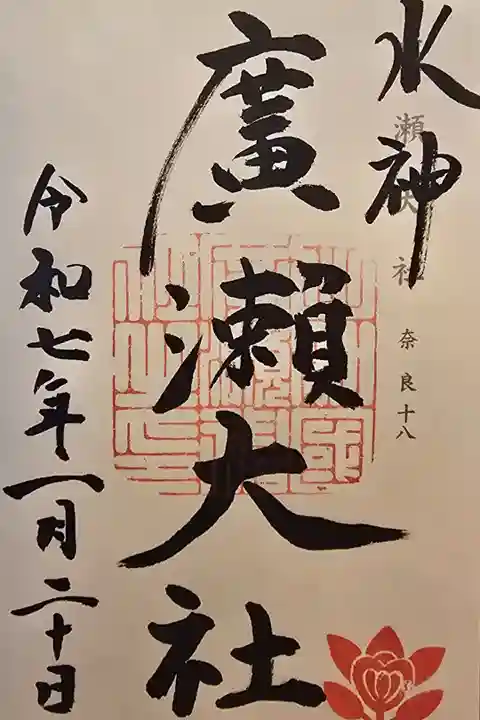 水神
瀬大社
奈良十八
廣瀬大社
令和七年一月二十日